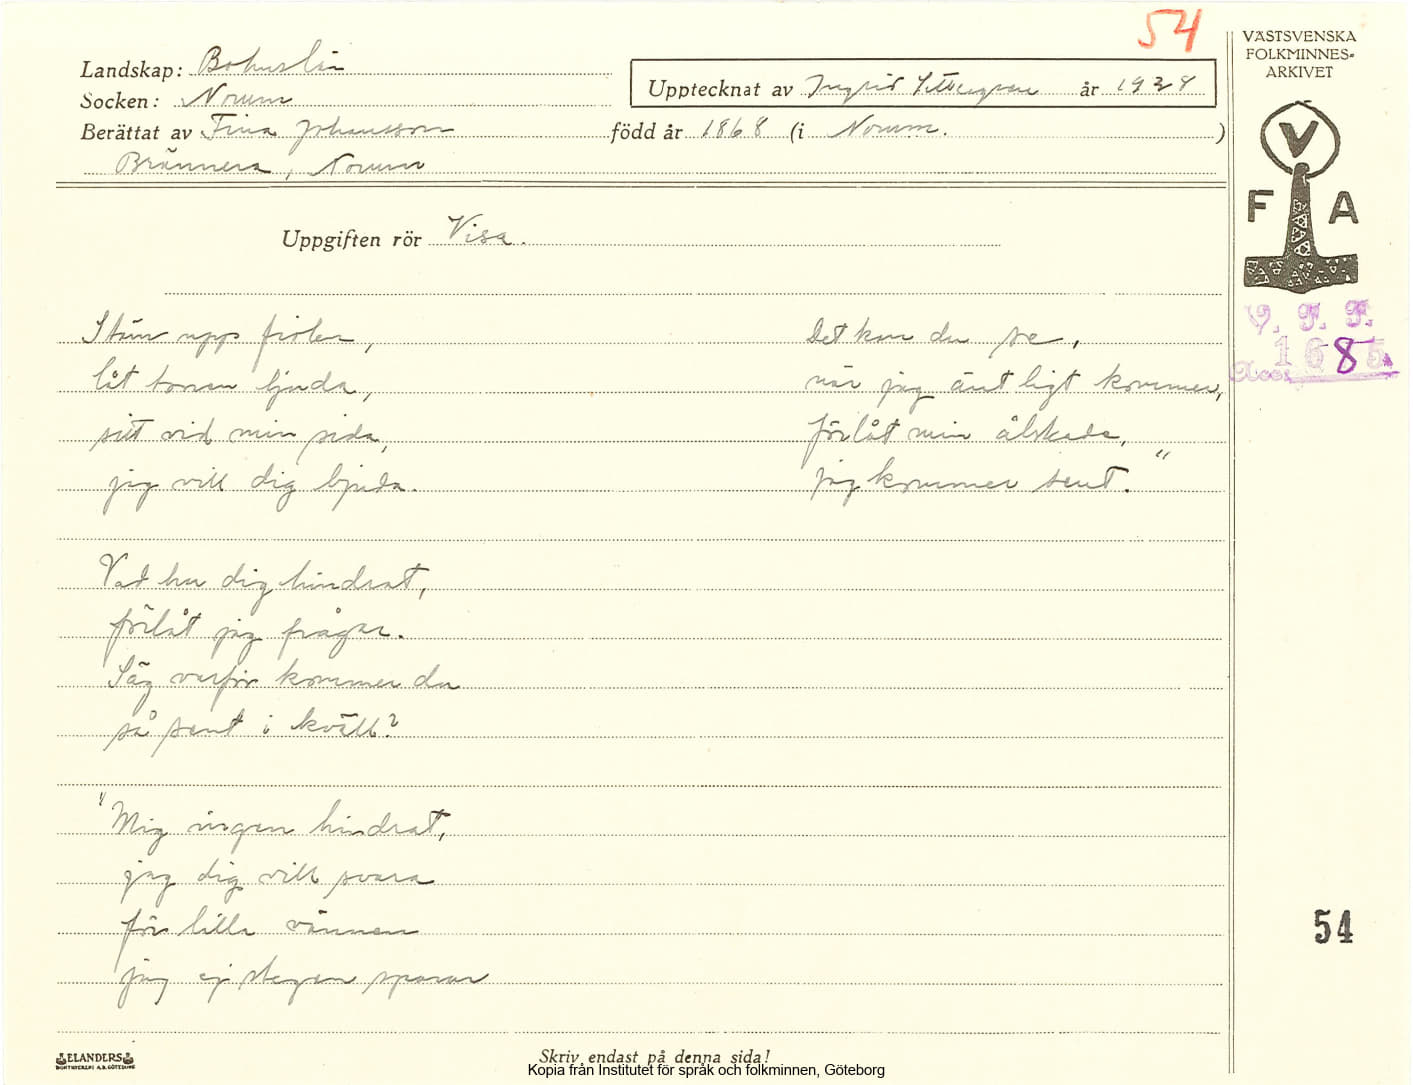 54
Landskap: Bohuslän
Socken: Norum
Upptecknat av Ingrid år 1928
Berättat av Fina Johansson född år 1868 (i Norum.)
Brännera, Norum
Uppgiften rör Visa.
Stäm upp fiolen,
låt tonen ljuda,
sitt vid min sida,
jag vill dig bjuda.
Vad har dig hindrat,
förlåt jag frågar.
Säg varför kommer du
så sent i kväll?
"Mig ingen hindrat,
jag dig vill svara
för lilla vännen
jag ej stegen sparar
Det kan du se,
när jag äntligt kommer,
förlåt min älskade,
jag kommer sent."
VÄSTSVENSKA
FOLKMINNES-
ARKIVET
V
F A
V. F. F.
1685
Acc.
54
ELANDERS
BOKTRYCKERI A.B. GÖTEBORG
Skriv endast på denna sida!
Kopia från Institutet för språk och folkminnen, Göteborg